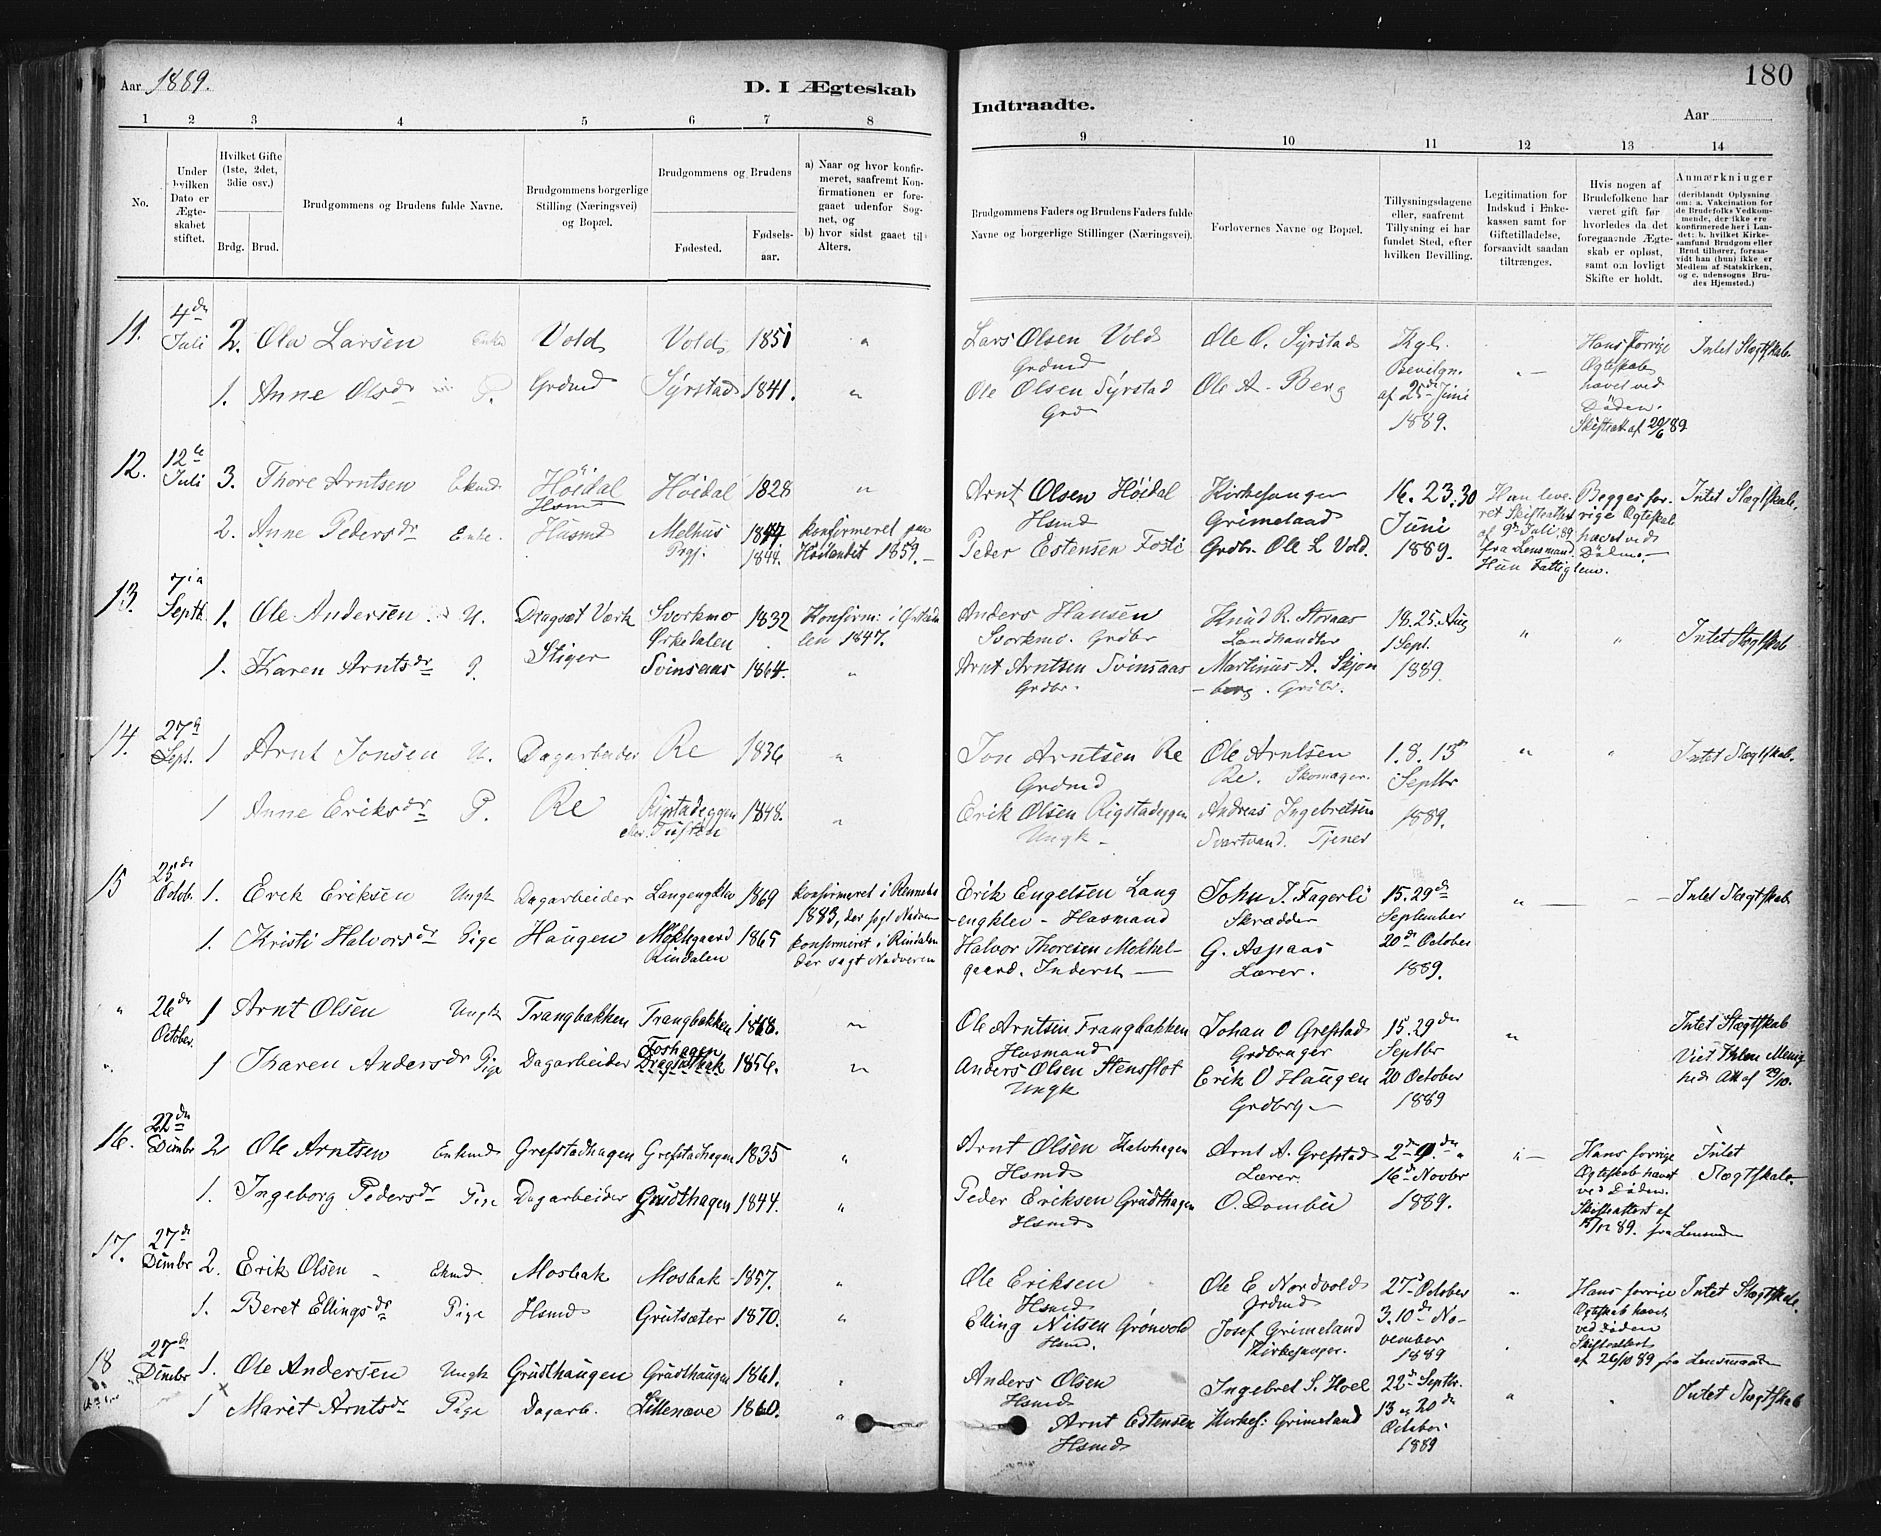 Aar 1889.
D. I Ægteskab
Indtraadte.
180
Aar
1 2 3 4 5 6 7 8 9 10 11 12 13 14
No.
Under hvilken Dato er Ægteskabet stiftet.
Hvilket Gifte (1ste, 2det, 3die osv.)
Brdg. Brud.
Brudgommens og Brudens fulde Navne.
Brudgommens borgerlige Stilling (Næringsvei) og Bopæl.
Brudgommens og Brudens
Fødested. Fødselsaar.
a) Naar og hvor konfirmeret, saafremt Konfirmationen er foregaaet udenfor Sognet, og
b) hvor sidst gaaet til Alters.
Brudgommens Faders og Brudens Faders fulde Navne og borgerlige Stillinger (Næringsvei).
Forlovernes Navne og Bopæl.
Tillysningsdagene eller, saafremt Tillysning ei har fundet Sted, efter hvilken Bevilling.
Legitimation for Indskud i Enkekassen samt for Giftetilladelse, forsaavidt saadan tiltrænges.
Hvis nogen af Brudefolkene har været gift før hvorledes da det foregaaende Ægteskab er opløst, samt om lovligt Skifte er holdt.
Anmærkniuger
(deriblandt Oplysning om: a. Vakcination for de Brudefolks Vedkommende, der ikke ere konfirmerede her i Landet: b. hvilket Kirkesamfund Brudgom eller Brud tilhører, forsaavidt han (hun) ikke er Medlem af Statskirken, og c. udensogns Brudes Hjemsted.)
11. 4de Juli 2. Ole Larsen Vold Vold 1851 " Lars Olsen Vold Grdmd Ole O. Syrstad Kgl. Bevilgn. af 25de Juni 1889. " Hans forrige Ægteskab hævet ved Døden. Skifteatt. af 20/6 89 Intet Slægtskab.
1. Anne Olsdr P. Grdmd Syrstad 1841. " Ole Olsen Syrstad Grd Ole A. Berg
12. 12te Juli 3. Thore Arntsen Ekmd Höidal Hsmd Höidal 1828 " Arnt Olsen Höidal Hsmd Kirkesanger Grimeland 16. 23. 30 Juni 1889. Begges forrige Ægteskab hævet ved Døden. Intet Slægtskab.
2. Anne Pedersdr Enke. Husmd Melhus Prgj. 1844. konfirmeret paa Höilandet 1859. Peder Estensen Fosli Grdbr. Ole L Vold. fra Lensmand. Hun Fattiglem.
13. 7de Septb. 1. Ole Andersen U. Dragset Værk Svorkmo Ørkedalen 1832 Konfirm: i Ørkedalen 1847. Anders Hansen Svorkmo. Grdbr Knud R. Storaas Landhandler 18. 25. Aug 1 Sept. 1889. " " Intet Slægtskab
1. Karen Arntsdr P. Stiger Svinsaas 1864. " Arnt Arntsen Svinsaas Grdbr. Martinus A. Skjønberg. Grdbr.
14. 27de Sept. 1 Arnt Jonsen U. Dagarbeider Re 1836 " Jon Arntsen Re Grdmd Ole Arntsen Re. Skomager. 1. 8. 15de Septbr 1889. " " Intet Slægtskab.
1 Anne Eriksdr P. Re Rigstadeggen 1848. " Erik Olsen Rigstadeggen Ungk. Andreas Ingebretsen Svartvand. Tjener
15 25de Octob. 1. Erik Eriksen Ungk Dagarbeider Langengklev 1869 konfirmeret i Rennebu 1883, der søgt Nadveren Erik Engelsen Langengklev – Husmand John J. Fagerli Skrædder 15. 29de September 20de October 1889. " Intet Slægtskab
1. Kristi Halvorsdr Pige Haugen Mokkgaard Rindalen 1865 konfirmeret i Rindalen der søgt Nadveren Halvor Thoresen Mokkelgaard. Inderst G. Aspaas Lærer.
" 26de October. 1 Arnt Olsen Ungk Trangbakken Trangbakken 1868. " Ole Arntsen Trangbakken Husmand Johan O Grefstad Grdbruger 15. 29de Septbr 20 October 1889 " Intet Slægtskab
1 Karen Andersdr Pige Dagarbeider Foshagen 1856. " Anders Olsen Stensflot Ungk Erik O Haugen Grdbrg
16. 22de Dcmbr 2 Ole Arntsen Enkmd Grefstadhagen Grefstadhagen 1835 " Arnt Olsen Kalvhagen Hsmd Arnt A. Grefstad Lærer. 2de 9de 16de Novbr 1889. " Hans forrige Ægteskab hævet ved Døden. Skifteattest af 89. fra Lensmd Intet Slægtskab
1. Ingeborg Pedersdr Pige Dagarbeider Grüdthagen 1844. " Peder Eriksen Grüdthagen Hsmd O. Dombü
17. 27de Dcmbr 2. Erik Olsen Ekmd. Mosbak Mosbak 1857. " Ole Eriksen Hsmd Ole E. Nordvold Grdmd 27de October 3. 10de November 1889 " Hans forrige Ægteskab hævet ved Døden Skifteattest af 26/10 89 fra Lensmand Intet Slægtskab.
1. Beret Ellingsdr Pige Hsmd Grutsæter 1870. " Elling Nilsen Grønvold Hsmd. Josef Grimeland Kirkesanger.
18 27de Dcmbr 1. Ole Andersen Ungk Grüdthaugen Grüdthaugen 1861. " Anders Olsen Hsmd Ingebret S. Hoel 22de Septbr. 13 og 20de October 1889 " Intet Slægtskab
1 Marit Arntsdr Pige Dagarb. Lillenæve 1860. " Arnt Estensen Hsmd Kirkes: Grimeland